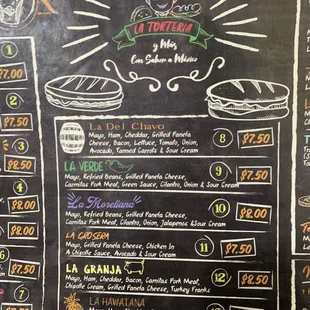 LA TORTERIA
y Más
Con Sabor a México
1
$7.00
2
$7.50
3
$8.50
$8.50
$7.50
7
La Del Chavo
8
$7.50
Mayo, Ham, Cheddar, Grilled Panela
Cheese, Bacon, Lettuce, Tomato, Onion,
Avocado, Tanned Carrots & Sour Cream
LA VERDE
9
$8.50
Mayo, Refried Beans, Grilled Panela Cheese,
Carnitas Pork Meat, Green Sauce, Cilantro, Onion & Sour Cream
La Moreliana
10
$8.00
Mayo, Refried Beans, Grilled Panela Cheese,
Carnitas Pork Meat, Cilantro, Onion, Jalapenos &Sour Cream
LA GROSERA
11
$7.50
Mayo, Grilled Panela Cheese, Chicken In
A Chipotle Sauce, Avocado & Sour Cream
LA GRANJA
12
$8.50
Mayo, Ham, Cheddar, Bacon, Carnitas Pork Meat,
Chipotle Cream, Grilled Panela Cheese, Turkey Franks
LA HAWAIANA